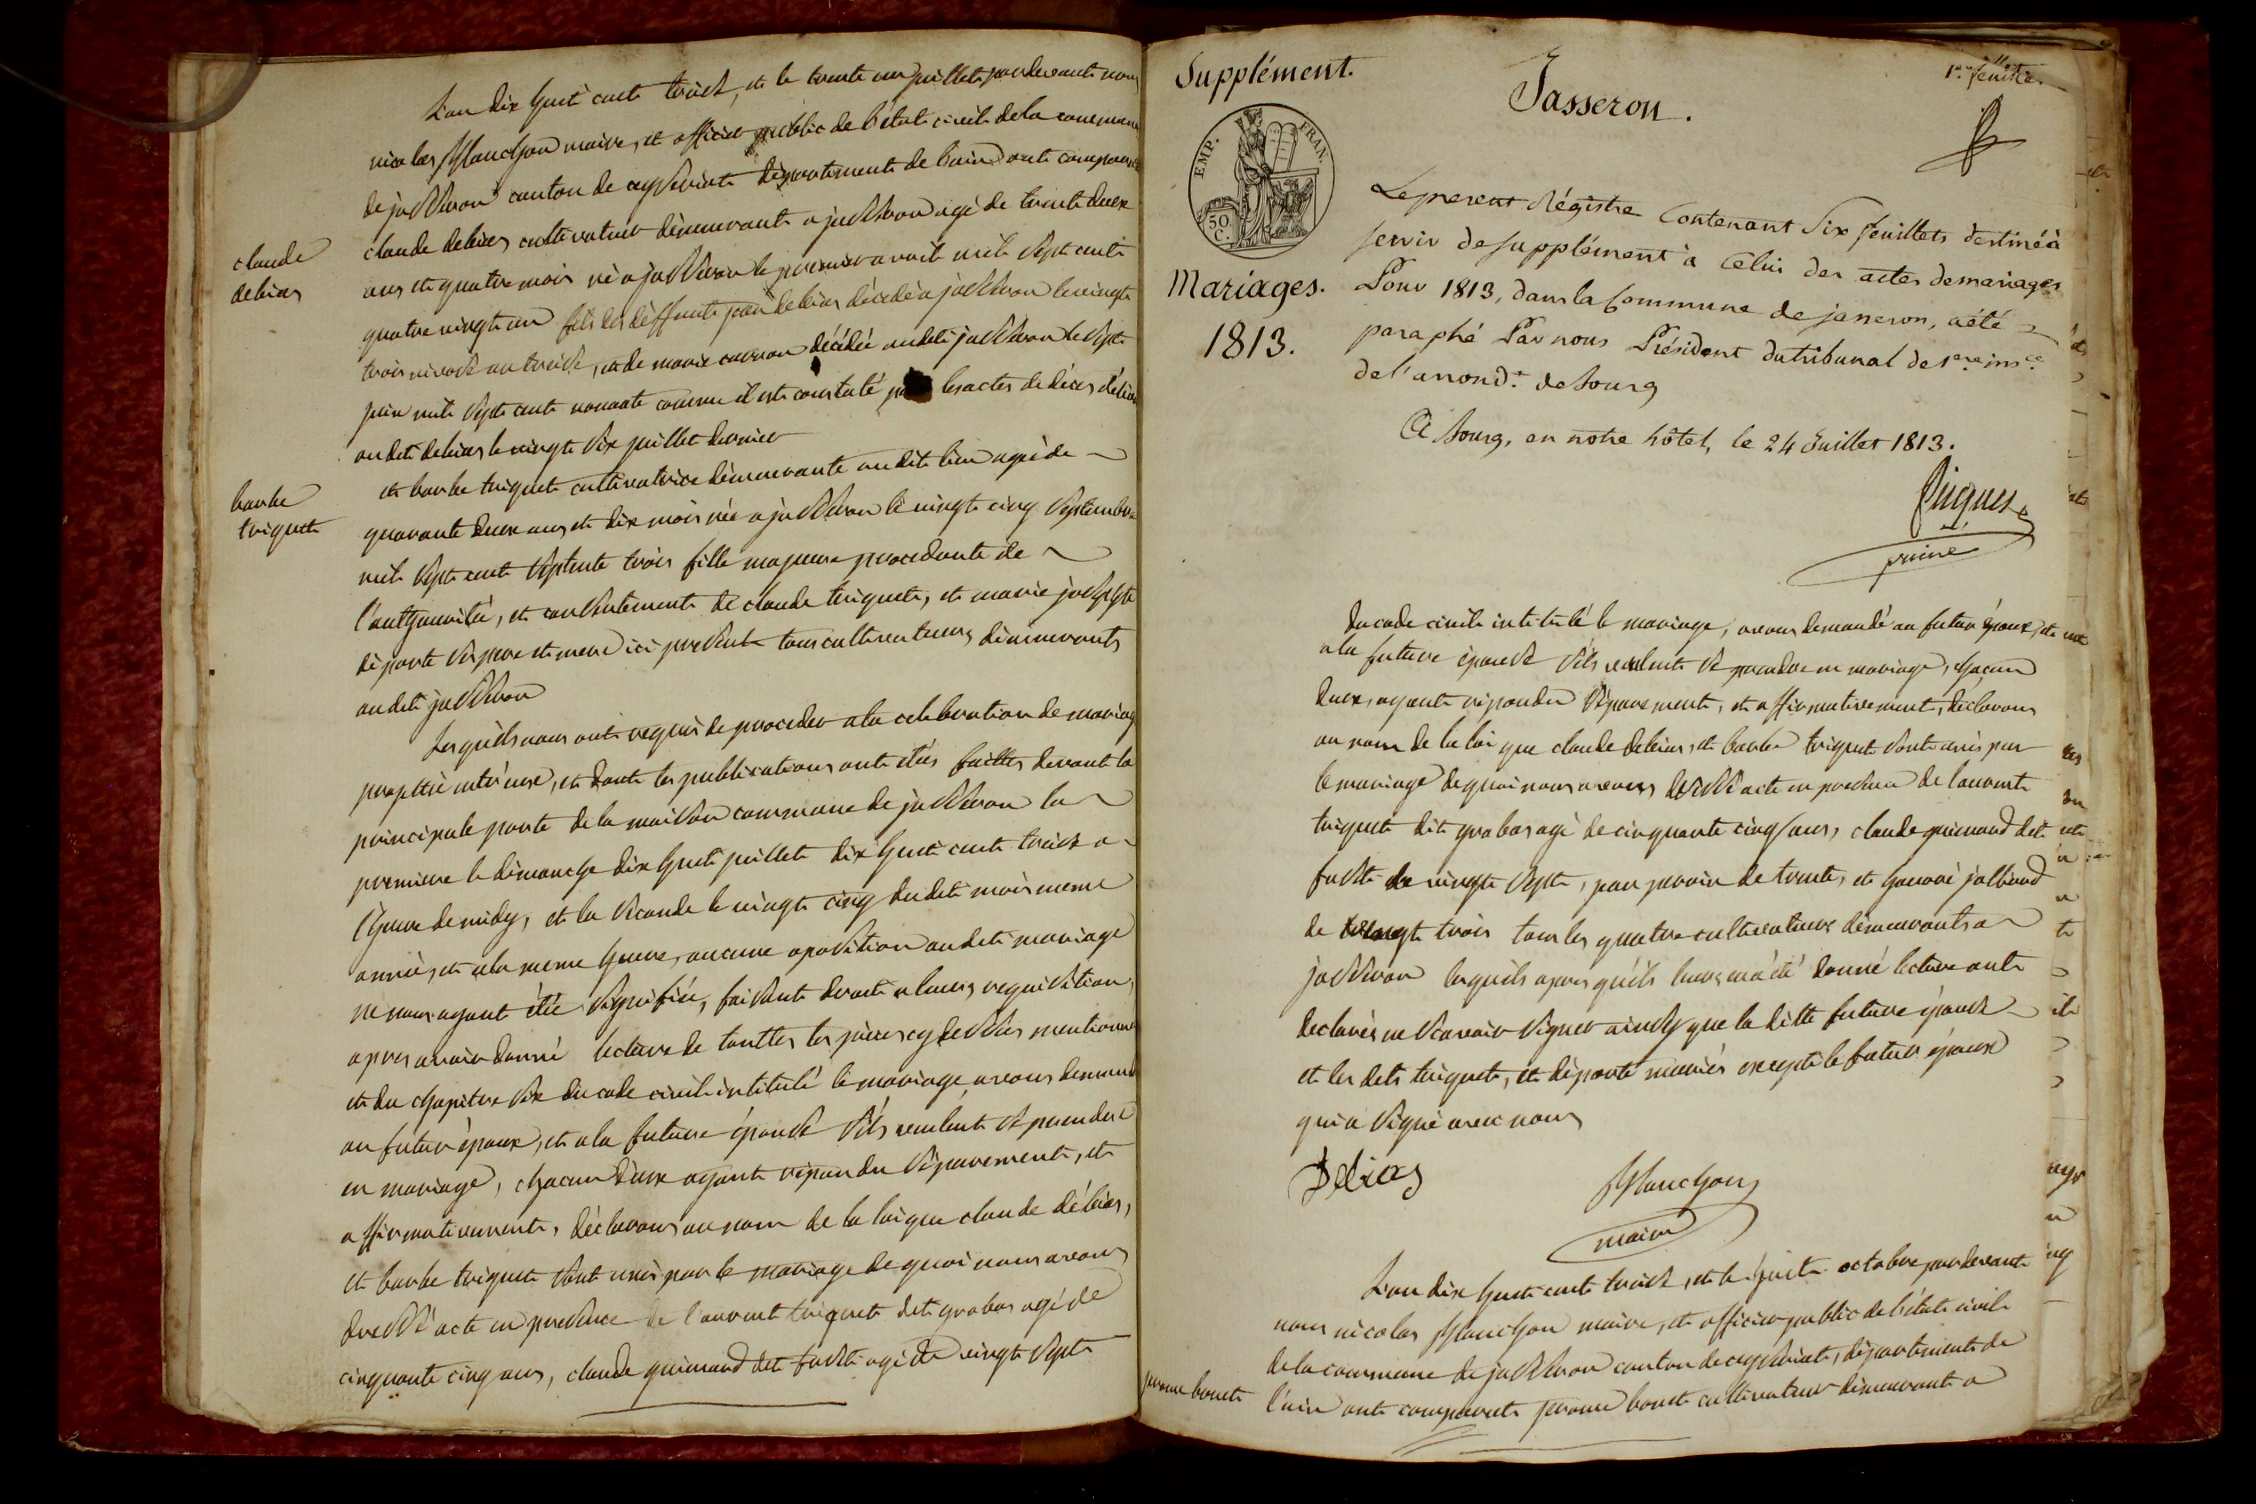 L'an dix huit cent treise, et le trente un juillet pardevant nous
nicolas planchon maire, et officier public de l'état civil de la commune
de jasseron canton de ceyseriat département de l'ain ont comparus
claude debias cultivateur démeurant a jasseron agé de trente deux
claude
debias
ans et quatre mois né a jasseron le premier avril mil sept cent
quatre vingt un fils des deffunts jean debias décédé a jasseron le vingt
trois nivose an treise, et de marie décédée audit jasseron le sept
juin mil sept cent nonante comme il est constaté par les actes de déces délivrés
audit debias le vingt six juillet dernier
et barbe triquet cultivatrice démeurante audit lieu agée de
barbe
triquet
quarante deux ans et dix mois née a jasseron le vingt cinq septembre
mil sept cent septente trois fille majeure procedante de
l'authorité, et consentement de claude triquet, et marie josephte
déporte ses pere et mere ici présents tous cultivateurs démeurants
audit jasseron
Lesquels nous ont requis de proceder a la celebration de mariage
projetté entr'eux, et dont les publications ont étés faittes devant la
principale porte de la maison commune de jasseron la
premiere le dimanche dix huit juillet dix huit cent treise a
l'heure de midy, et la séconde le vingt cinq dudit mois meme
année, et a la meme heure, aucune oposition audit mariage
ne nous ayant étée signifiée, faisant droit a leurs requisition,
apres avoir donné lecture de touttes les pieces cy dessus mentionnées
et du chapitre six du code civil intitulé le mariage avons demandé
au futur époux, et a la future épouse s'ils veulent se prendre
en mariage, chacun d'eux ayant répondu séparement, et
affirmativement, déclarons au nom de la loi que claude débias,
et barbe triquet sont unis par le mariage de quoi nous avons
dressé acte en presence de laurent triquet dit grabas agé de
cinquante cinq ans, claude guimaud dit fusti agé de vingt sept
Supplément.
Jasseron.
1er feuillet.
EMP. FRAN.
50 C.
Mariages.
1813.
Le present Régistre Contenant Six feuillets destiné à
servir de supplément à Celui des actes de mariages
Pour 1813, dans la Commune de jasseron, a été
paraphé Par nous Président du tribunal de 1ere insce
de l'arrondt. de bourg
A bourg, en notre hôtel, le 24 Juillet 1813.
du code civil intitulé le mariage, avons demandé au futur époux, et
a la future épouse s'ils veulent se prendre en mariage, chacun
d'eux, ayant répondu séparement, et affirmativement, déclarons
au nom de la loi que claude debias, et barbe triquet sont unis par
le mariage de quoi nous avons dressé acte en presence de laurent
triquet dit grabas agé de cinquante cinq ans, claude guimaud dit
fusti de vingt sept, jean de trente, et honoré
de vingt trois tous les quatre cultivateurs démeurants a
jasseron lesquels apres qu'ils leurs en a été donné lecture ont
declarés ne scavoir signer ainsy que la ditte future épouse
et les dits triquet, et déporte mariés excepté le futur époux
qui a signé avec nous
Debias
planchon
maire
L'an dix huit cent treise, et le huit octobre pardevant
nous nicolas planchon maire, et officier public de l'état civil
de la commune de jasseron canton de ceyseriat, département de
l'ain ont comparut jerome bouet cultivateur démeurant a
jerome bouet